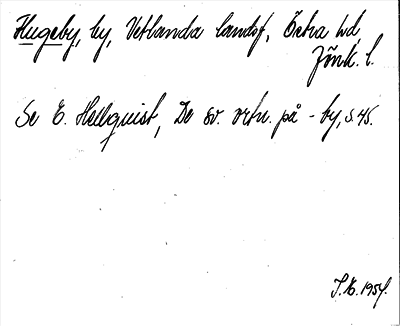 Flugeby, by, Vetlanda landsf, Östra hd,
Jönk. l.
Se E. Hellquist, De sv. ortn. på -by, s. 45.
I.E. 1954.